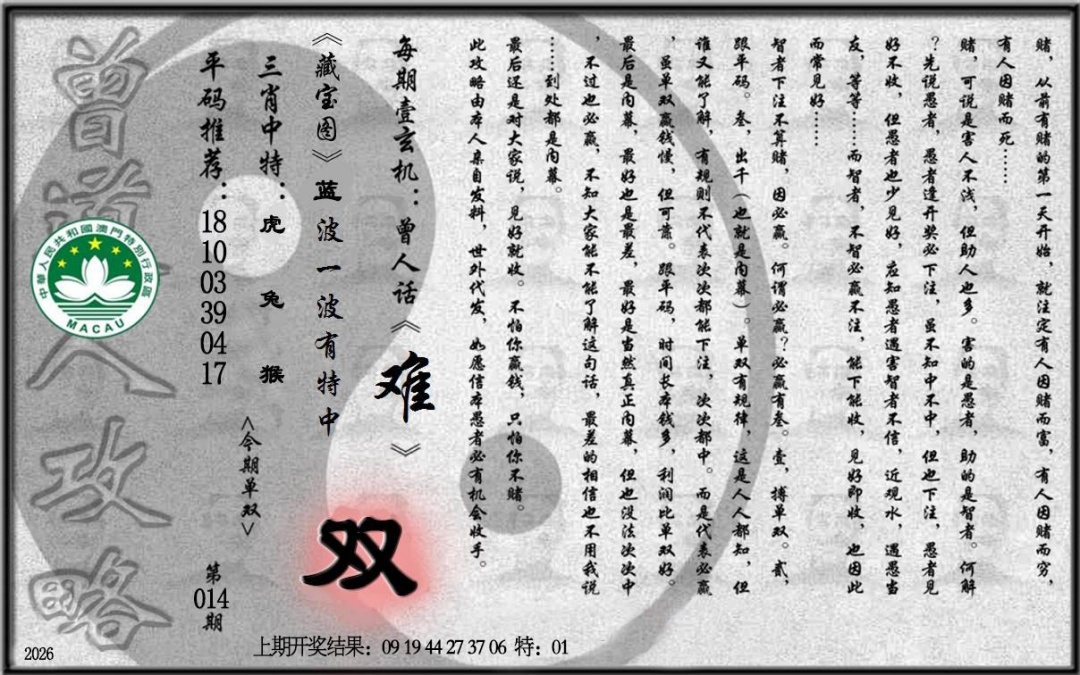 赌，从前有赌的第一天开始，就注定有人因赌而富，有人因赌而穷，
有人因赌而死……
赌，可说是害人不浅，但助人也多。害的是愚者，助的是智者。何解
？先说愚者，愚者逢开奖必下注，虽不知中不中，但也下注，愚者见
好不收，但愚者也少见好，应知愚者遇害智者不信，近观水，遇愚当
友，等等……而智者，不智必赢不注，能下能收，见好即收，也因此
而常见好……
智者下注不算赌，因必赢。何谓必赢？必赢有叁。壹，搏单双。贰，
跟平码。叁，出千（也就是内幕）。单双有规律，这是人人都知，但
谁又能了解，有规则不代表次次都能下注，次次都中。而是代表必赢
，虽单双赢钱慢，但可靠。跟平码，时间长本钱多，利润比单双好。
最后是内幕，最好也是最差，最好是当然真正内幕，但也没法次次中
，不过也必赢，不知大家能不能了解这句话，最差的相信也不用我说
……到处都是内幕。
最后还是对大家说，见好就收。不怕你赢钱，只怕你不赌。
此攻略由本人亲自发料，世外代发，如愿信本愚者必有机会收手。
每期壹玄机：曾人话《难》
《藏宝图》蓝波一波有特中
双
三肖中特：虎 兔 猴
<今期单双>
平码推荐：18 10 03 39 04 17
第014期
曾道人攻略
中華人民共和國澳門特別行政區
MACAU
2026
上期开奖结果：09 19 44 27 37 06 特：01